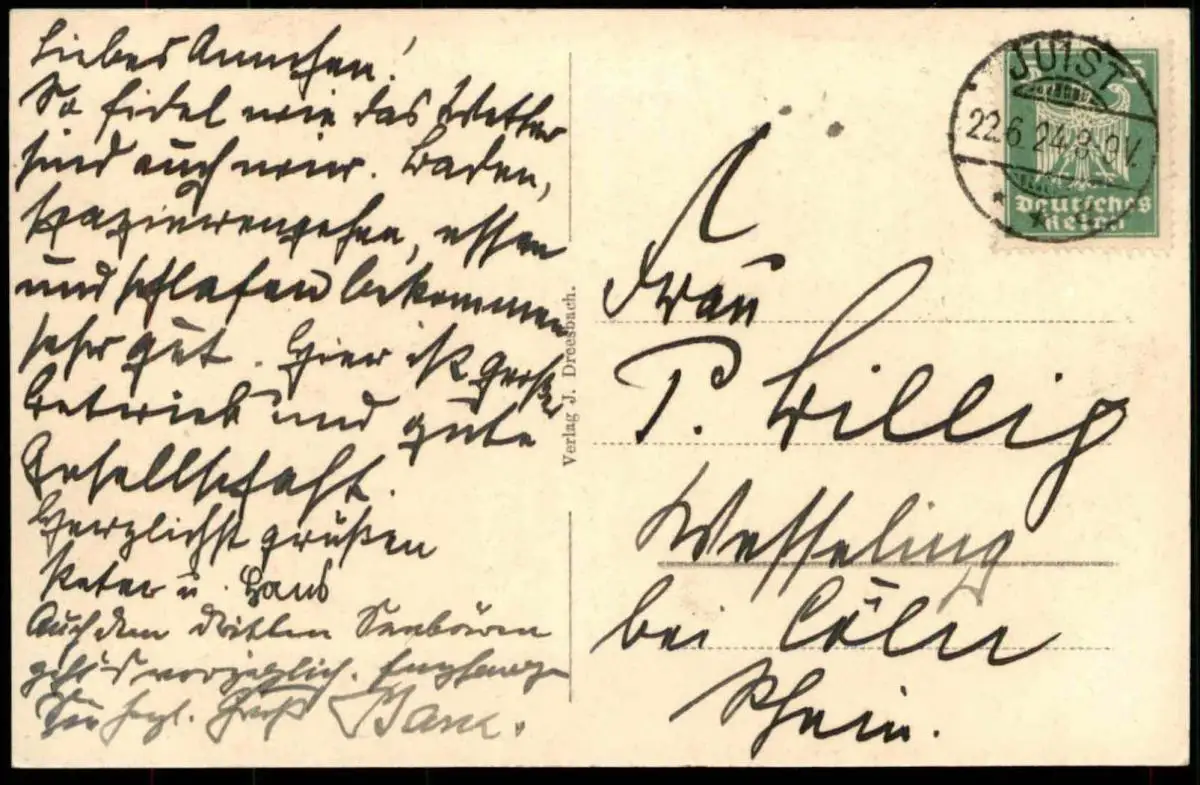 Liebes Annchen!
So fidel wie das Wetter
sind auch wir. Baden,
spazierengehen, essen
und schlafen bekommen
sehr gut. Hier ist großer
Betrieb und gute
Gesellschaft.
Herzlichst grüßen
Peter u. Hans
Auch dem dritten Seelöwen
geht's vorzüglich. Empfangen
Sie herzl. Gruß
Verlag J. Dreesbach.
JUIST
22.6.24.8-9V.
Deutsches
Reich
Frau
P. Willig
Wesseling
bei Cöln
Rhein.